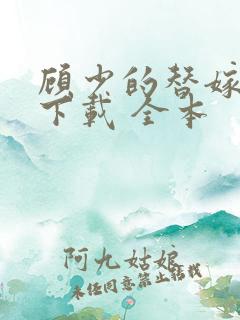 顾少的替嫁
下载 全本
阿九姑娘
未经同意禁止转载